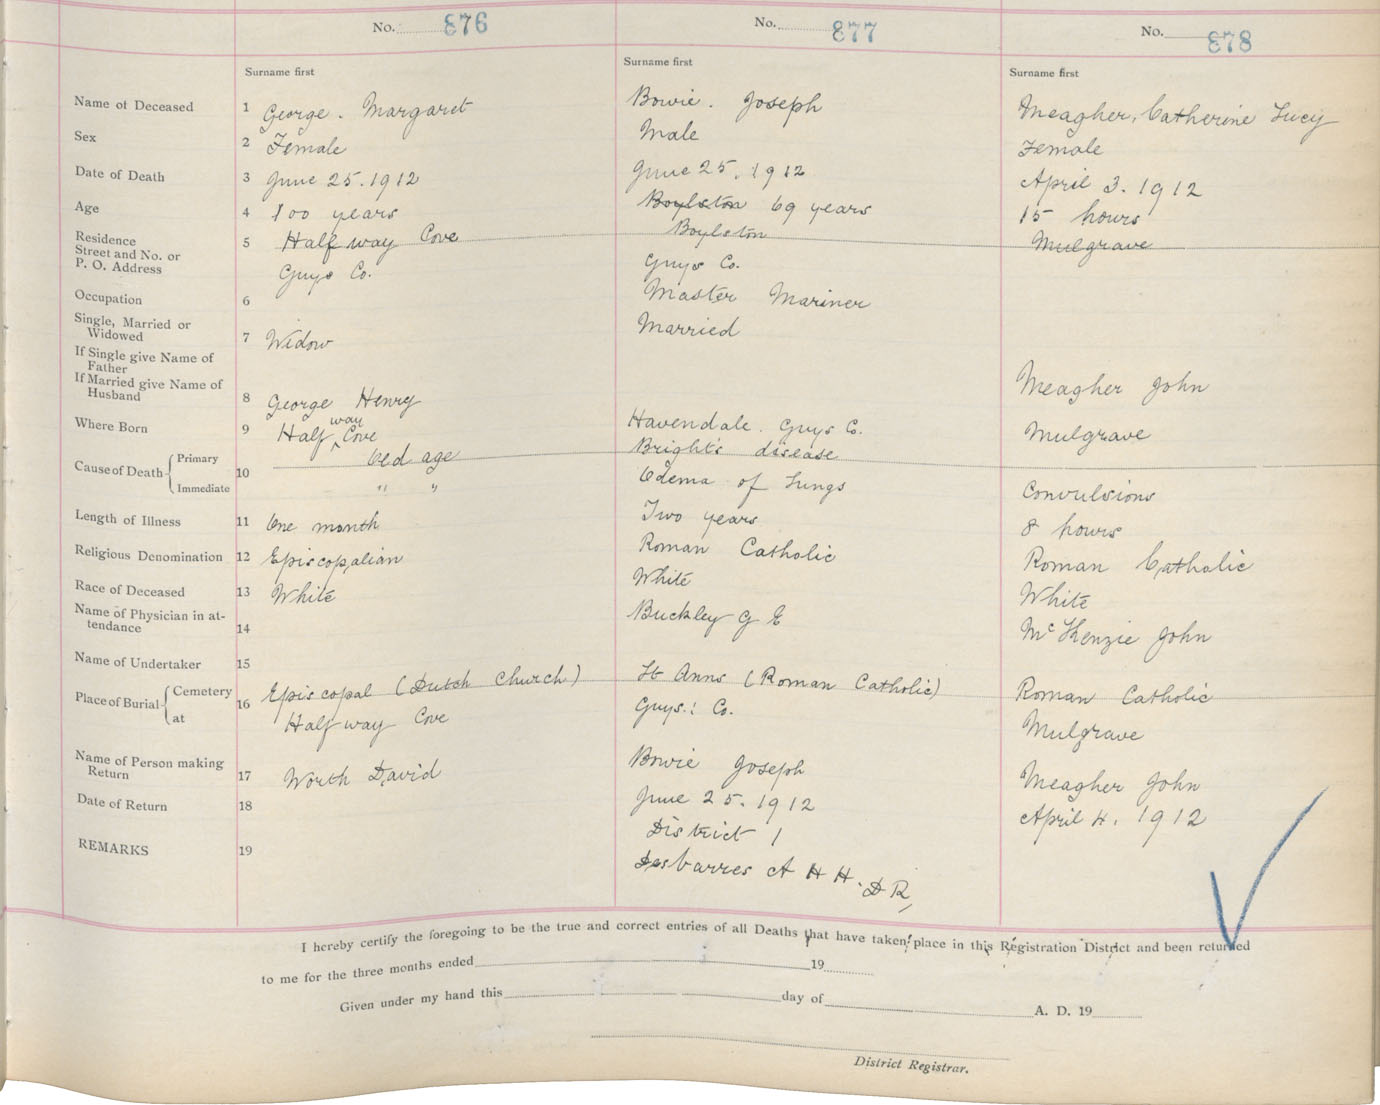 No. 876 No. 877 No. 878
Surname first Surname first Surname first
Name of Deceased 1 George. Margaret Bowie. Joseph Meagher, Catherine Lucy
Sex 2 Female Male Female
Date of Death 3 June 25. 1912 June 25. 1912 April 3. 1912
Age 4 100 years Boylston 69 years 15 hours
Residence Street and No. or P. O. Address 5 Half way Cove Boylston Mulgrave
Guys Co. Guys Co.
Occupation 6 Master Mariner
Single, Married or Widowed 7 Widow Married
If Single give Name of Father
If Married give Name of Husband 8 George Henry Meagher John
Where Born 9 Half way Cove Havendale. Guys Co. Mulgrave
Cause of Death Primary 10 Old age Bright's disease
Immediate " " Odema of Lungs Convulsions
Length of Illness 11 One month Two years 8 hours
Religious Denomination 12 Episcopalian Roman Catholic Roman Catholic
Race of Deceased 13 White White White
Name of Physician in attendance 14 Buckley G E McKenzie John
Name of Undertaker 15
Place of Burial Cemetery 16 Episcopal (Dutch Church) St Anns (Roman Catholic) Roman Catholic
at Half way Cove Guys: Co. Mulgrave
Name of Person making Return 17 Worth David Bowie Joseph Meagher John
Date of Return 18 June 25. 1912 April 4. 1912
REMARKS 19 District 1
Desbarres A H H. D R,
I hereby certify the foregoing to be the true and correct entries of all Deaths that have taken place in this Registration District and been returned
to me for the three months ended 19
Given under my hand this day of A. D. 19
District Registrar.